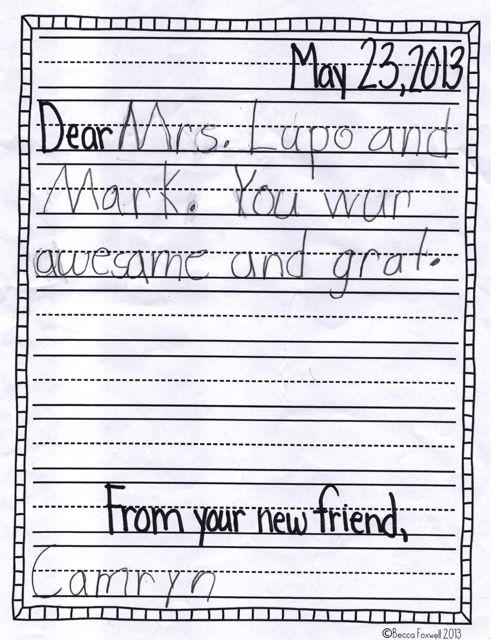 May 23, 2013
Dear Mrs. Lupo and
Mark. You wur
awesame and grat.
From your new friend,
Camryn
©Becca Foxwell 2013